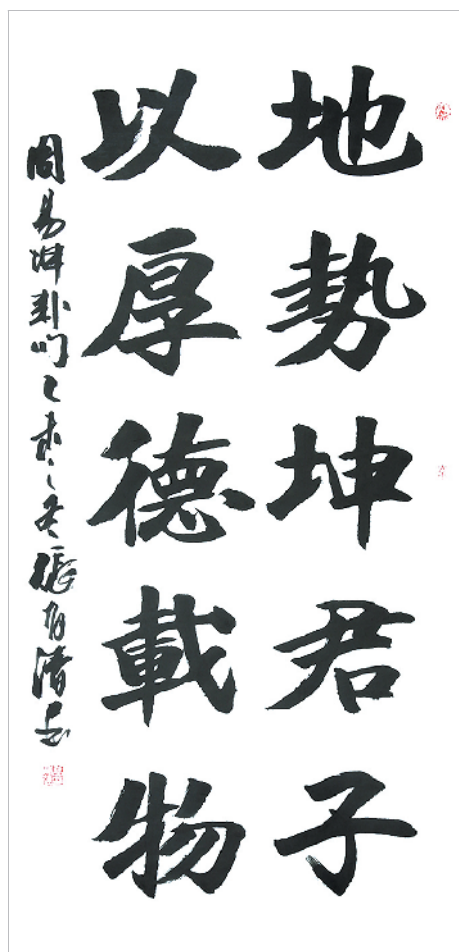 地勢坤君子
以厚德載物
周易坤卦句乙未之冬張有清書